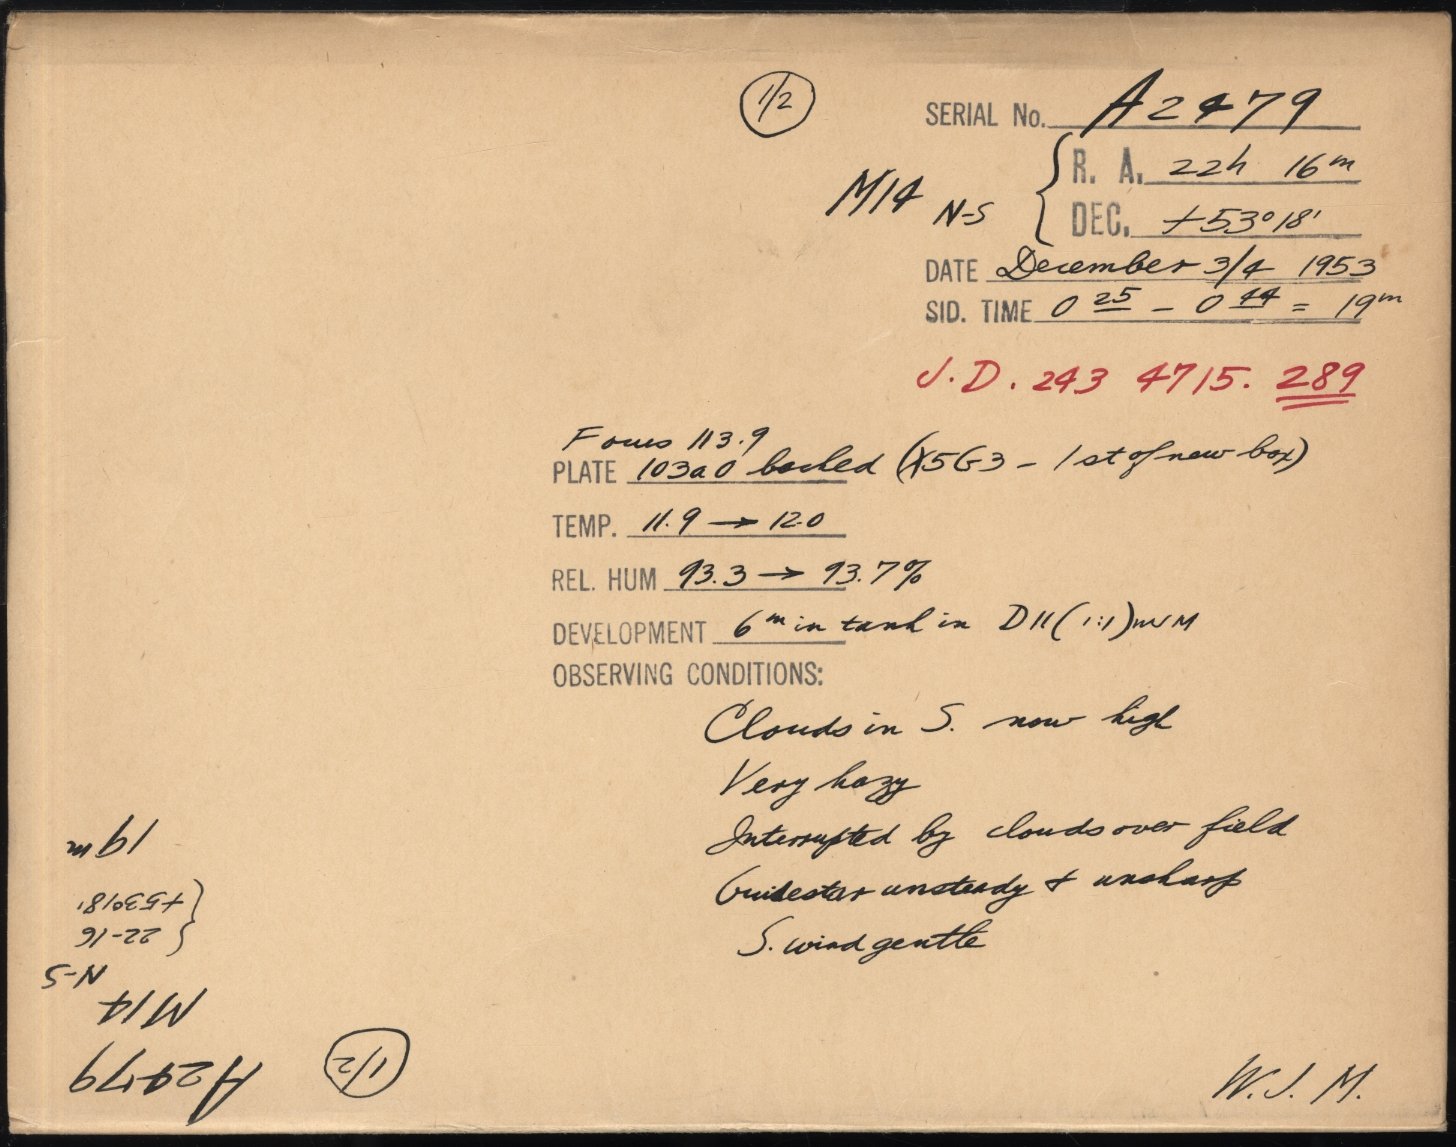 1/2
SERIAL No. A2479
R. A. 22h 16m
M14 N-S
DEC. +53°18'
DATE December 3/4 1953
SID. TIME 0 25 - 0 44 = 19m
J.D. 243 4715. 289
Focus 113.9
PLATE 103a0 backed (X5G3 - 1st of new box)
TEMP. 11.9 → 12.0
REL. HUM 93.3 → 93.7%
DEVELOPMENT 6m in tank in D11 (1:1)
OBSERVING CONDITIONS:
Clouds in S. now high
Very hazy
Interrupted by clouds over field
Guidestar unsteady + unsharp
S. wind gentle
W. J. M.
A2479 1/2
M14
N-S
22-16
+53°18'
19m